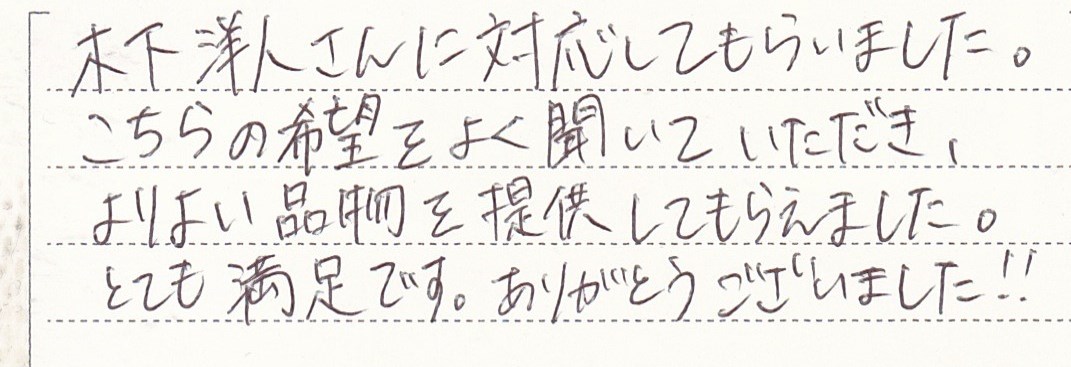 木下洋人さんに対応してもらいました。
こちらの希望をよく聞いていただき、
よりよい品物を提供してもらえました。
とても満足です。ありがとうございました!!